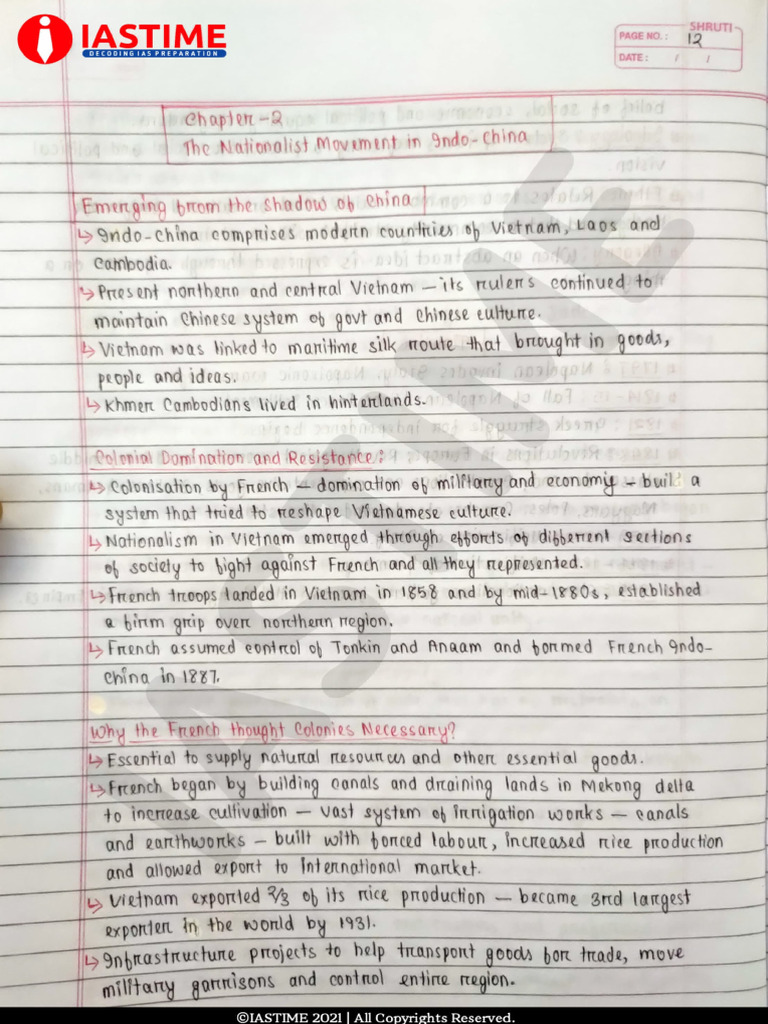 IASTIME
DECODING IAS PREPARATION
SHRUTI
PAGE NO.: 12
DATE: / /
Chapter-2
The Nationalist Movement in Indo-China
Emerging from the Shadow of China
↳ Indo-China comprises modern countries of Vietnam, Laos and
Cambodia.
↳ Present northern and central Vietnam – its rulers continued to
maintain Chinese system of govt and Chinese culture.
↳ Vietnam was linked to maritime silk route that brought in goods,
people and ideas.
↳ Khmer Cambodians lived in hinterlands.
Colonial Domination and Resistance:
↳ Colonisation by French – domination of military and economy – built a
system that tried to reshape Vietnamese culture.
↳ Nationalism in Vietnam emerged through efforts of different sections
of society to fight against French and all they represented.
↳ French troops landed in Vietnam in 1858 and by mid-1880s, established
a firm grip over northern region.
↳ French assumed control of Tonkin and Anaam and formed French Indo-
China in 1887.
Why the French thought Colonies Necessary?
↳ Essential to supply natural resources and other essential goods.
↳ French began by building canals and draining lands in Mekong delta
to increase cultivation – vast system of irrigation works – canals
and earthworks – built with forced labour, increased rice production
and allowed export to international market.
↳ Vietnam exported 2/3 of its rice production – became 3rd largest
exporter in the world by 1931.
↳ Infrastructure projects to help transport goods for trade, move
military garrisons and control entire region.
IASTIME
©IASTIME 2021 | All Copyrights Reserved.